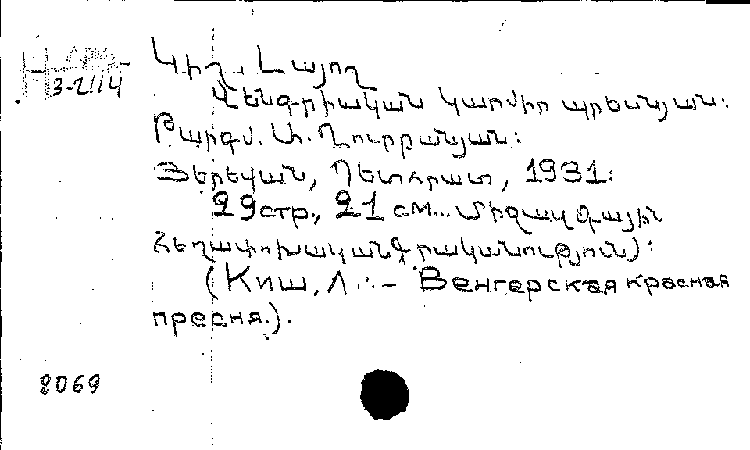 3-2114
Կիշ, Լայոշ
Վենգրիական կարմիր պրեսնյան:
Թարգմ. Տ. Ղուրրանյան:
Յերեվան, Պետհրատ, 1931:
29 стр., 21 см... միջազգային
հեղափոխական գրականություն):
(Киш, Л. — Венгерская красная
пресня.).
8069